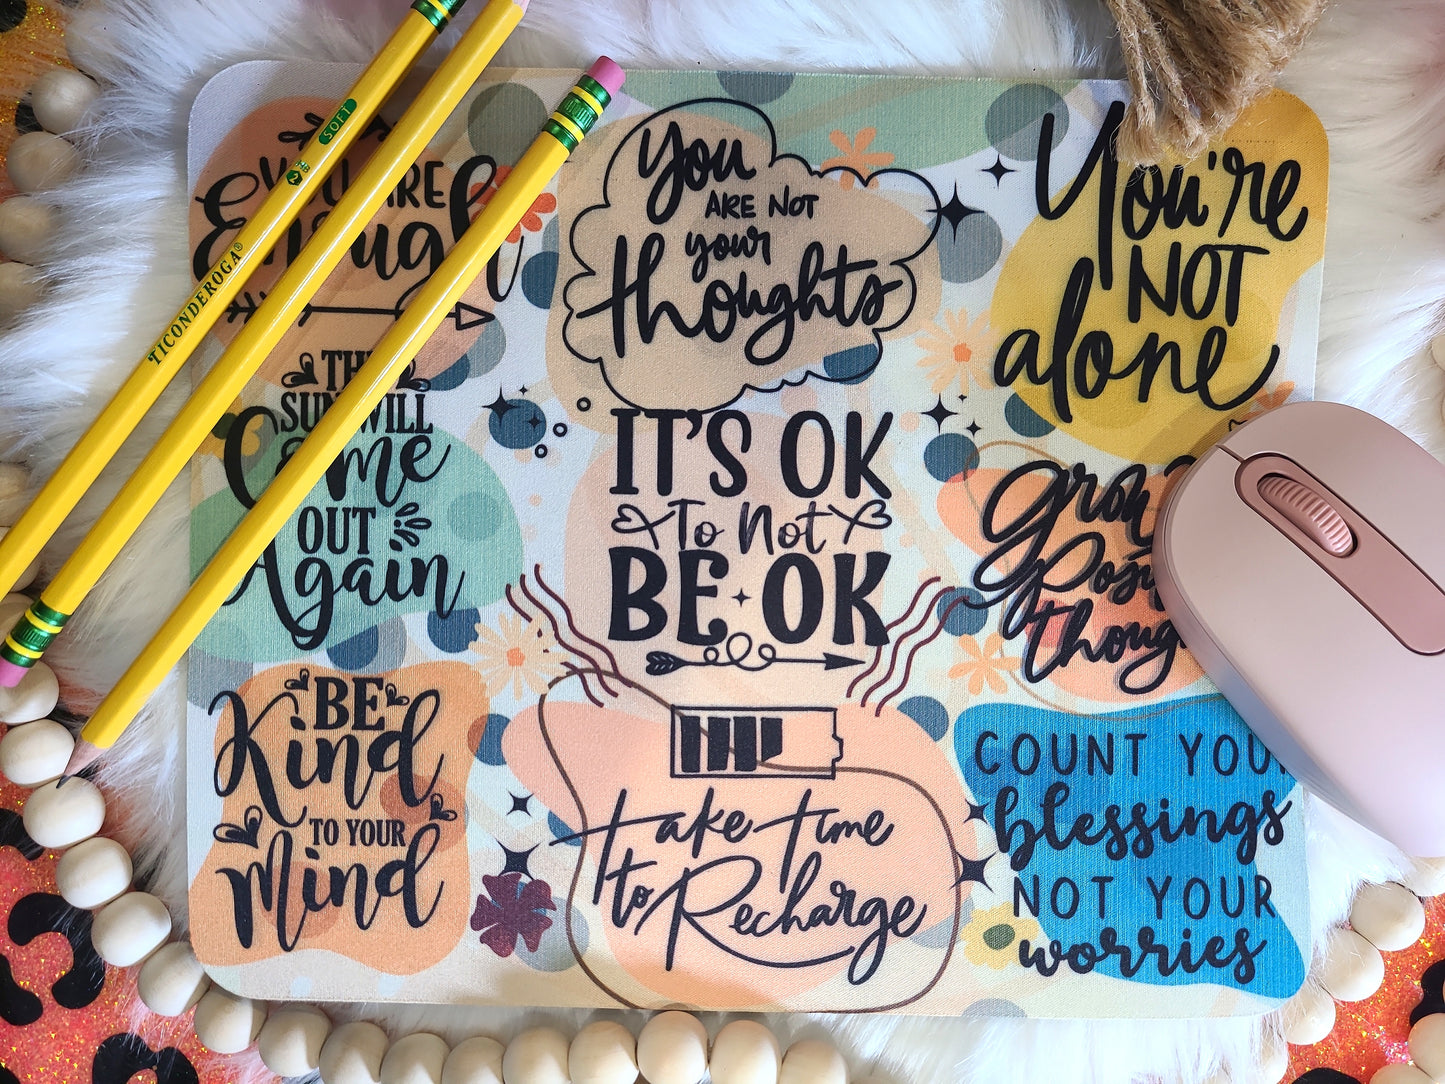 YOU ARE
Enough
TICONDEROGA®
SOFT
You
ARE NOT
your
thoughts
You're
NOT
alone
THE
SUN WILL
Come
OUT
Again
IT'S OK
To Not
BE OK
Grow
thoug
BE
Kind
TO YOUR
Mind
take time
to Recharge
COUNT YOUR
blessings
NOT YOUR
worries